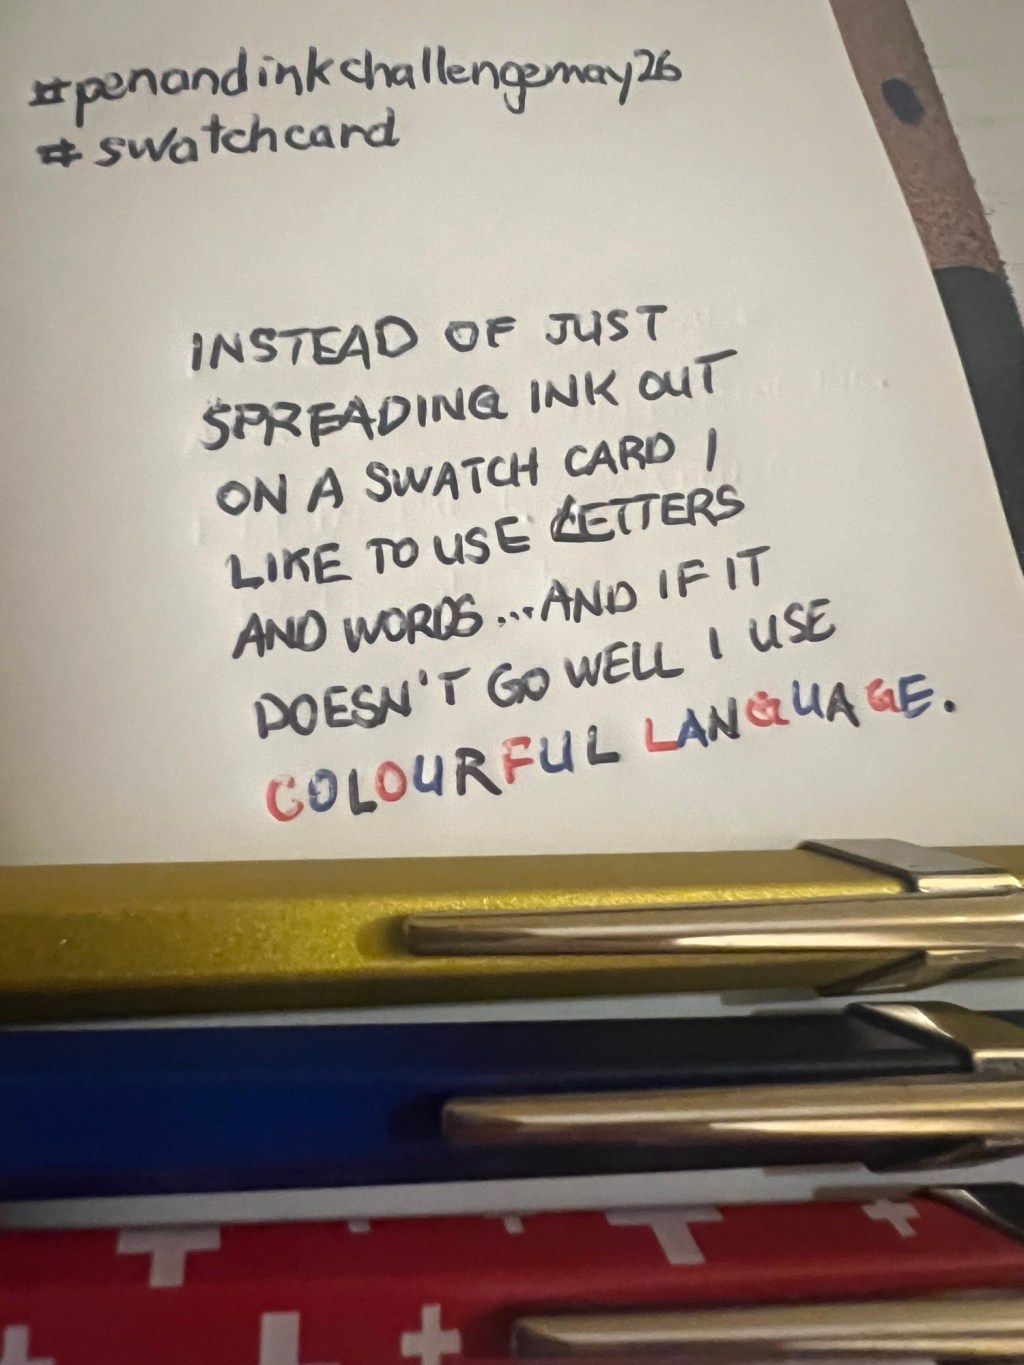 #penandinkchallengemay26
#swatchcard
INSTEAD OF JUST
SPREADING INK OUT
ON A SWATCH CARD I
LIKE TO USE LETTERS
AND WORDS...AND IF IT
DOESN'T GO WELL I USE
COLOURFUL LANGUAGE.